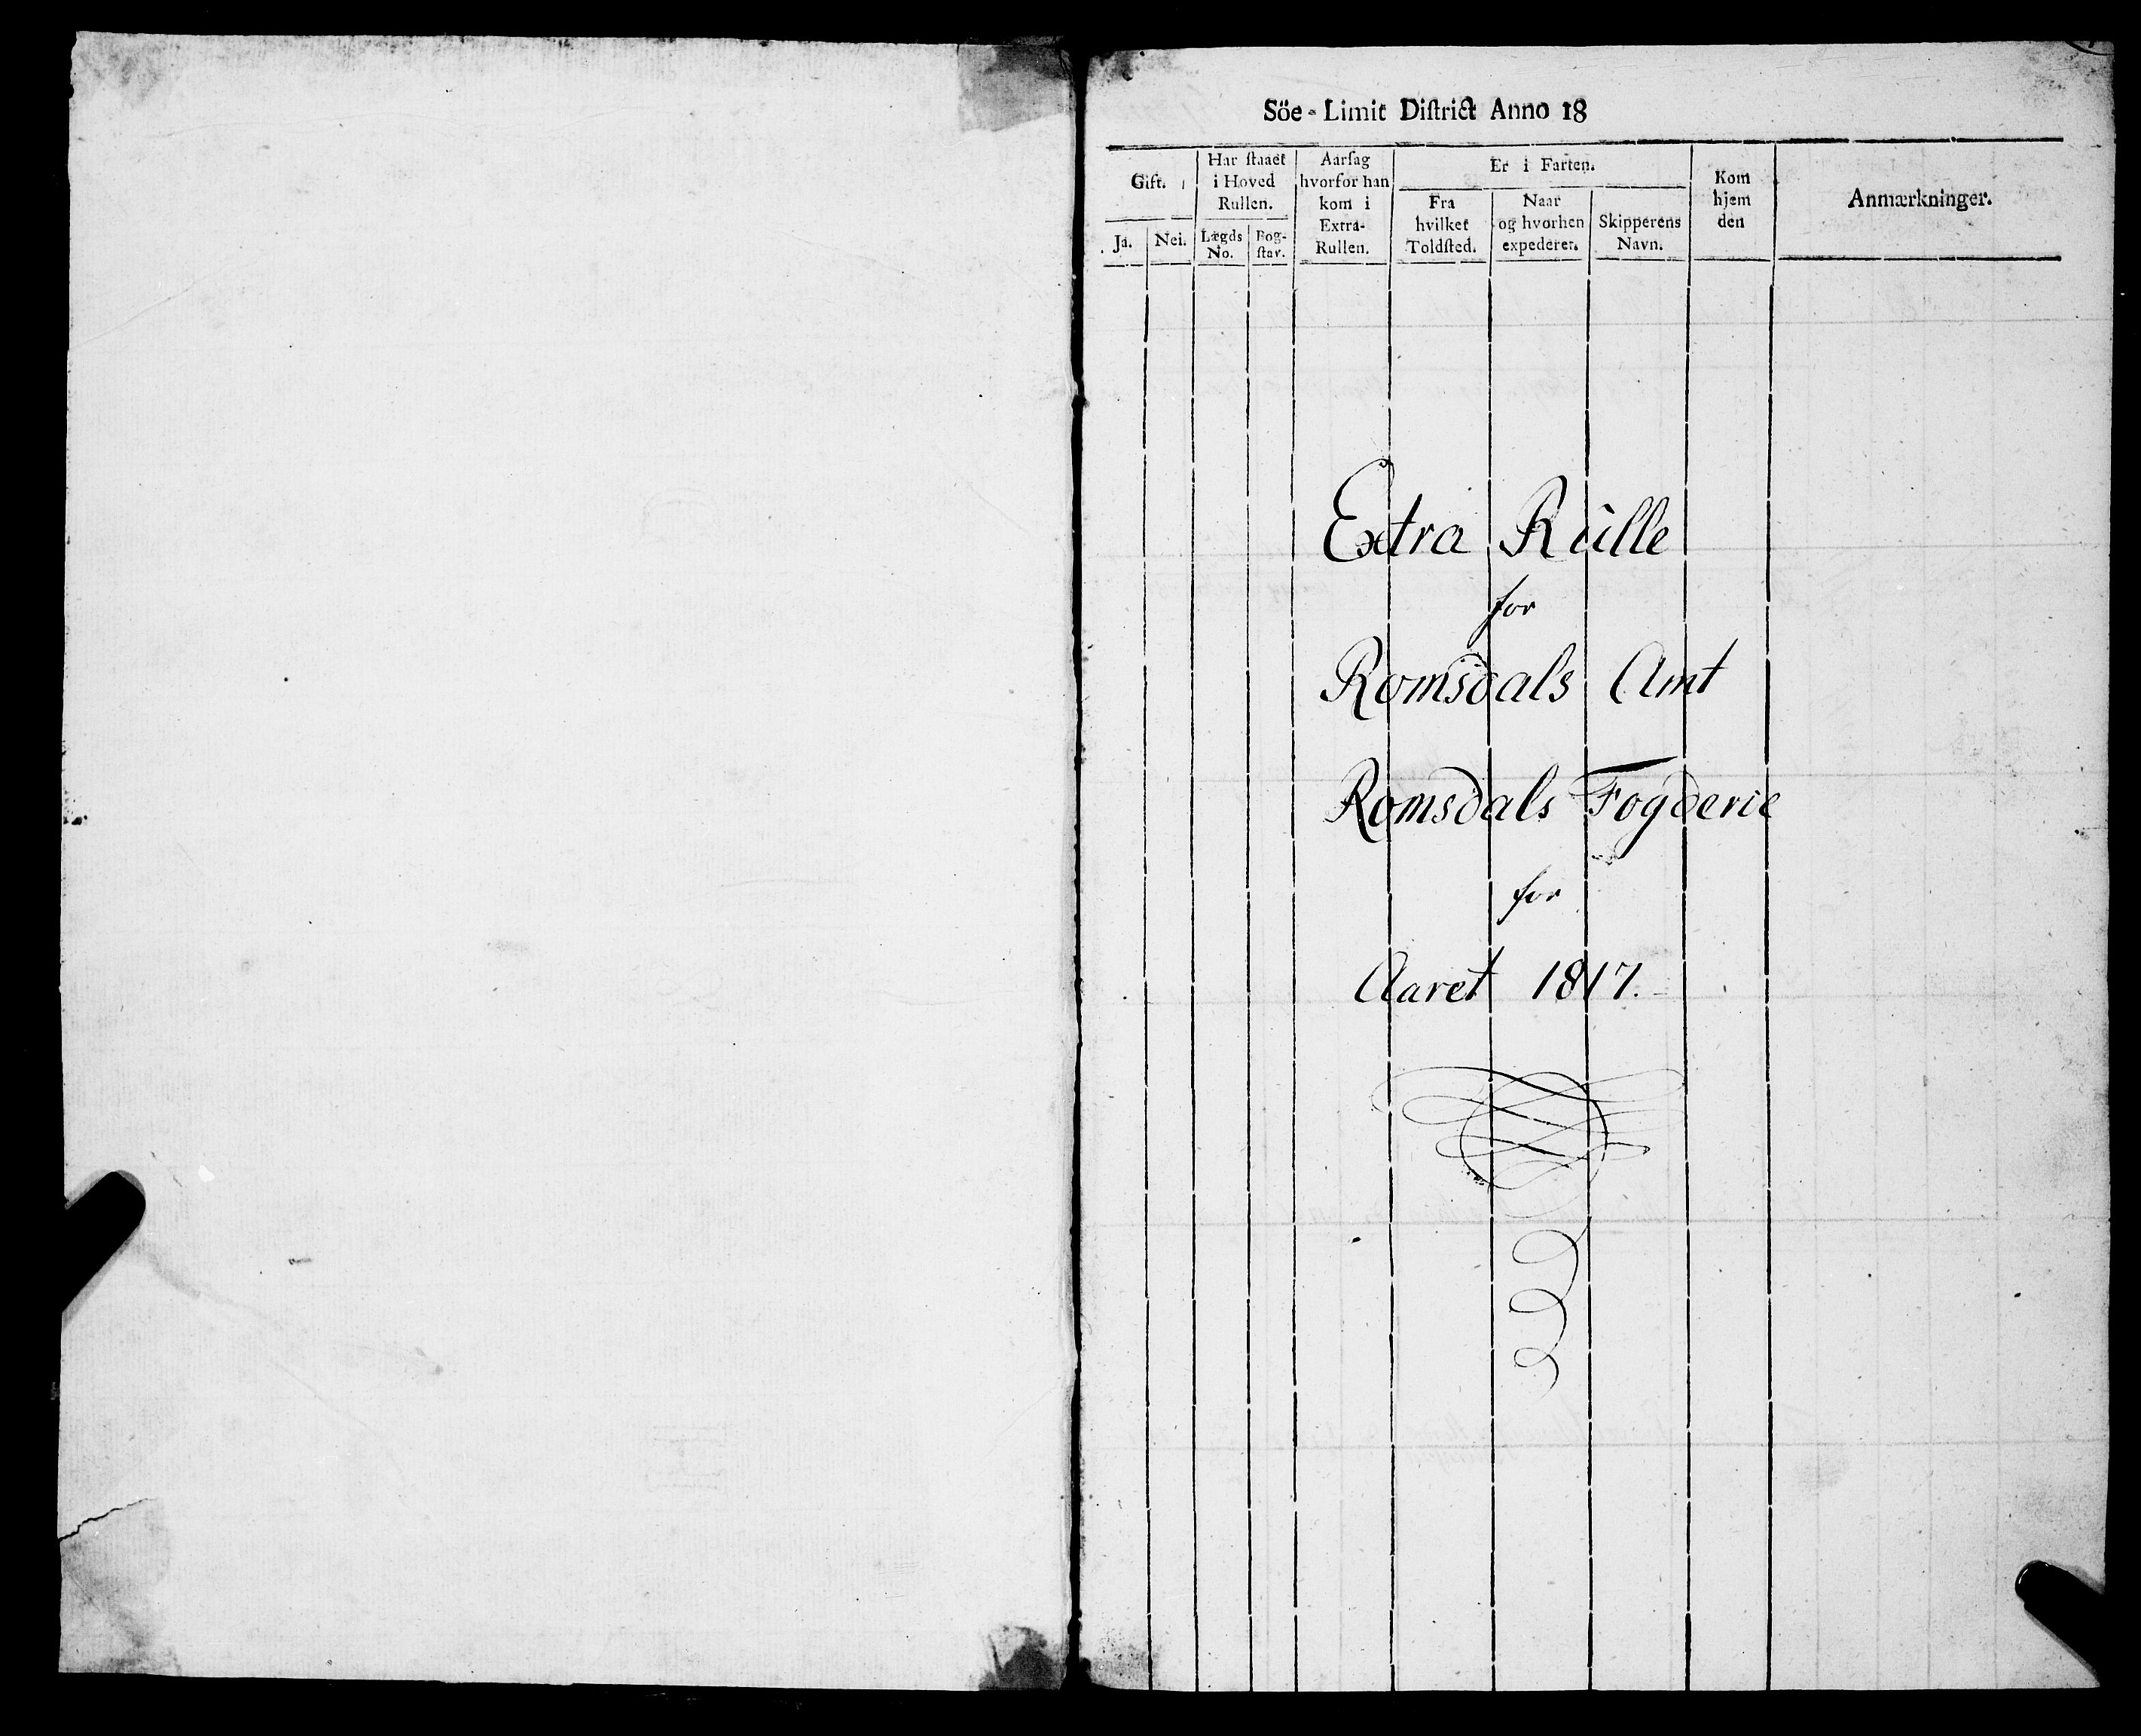 Söe-Limit District Anno 18
Gift.
Ja.
Nei.
Har staaet
i Hoved
Rullen.
Lægds
No.
Bog-
stav.
Aarsag
hvorfor han
kom i
Extra-
Rullen.
Er i Farten.
Fra
hvilket
Toldsted.
Naar
og hvorhen
expederet.
Skipperens
Navn.
Kom
hjem
den
Anmærkninger.
Extra Rulle
for
Romsdals Amt
Romsdals Fogderie
for
Aaret 1817.